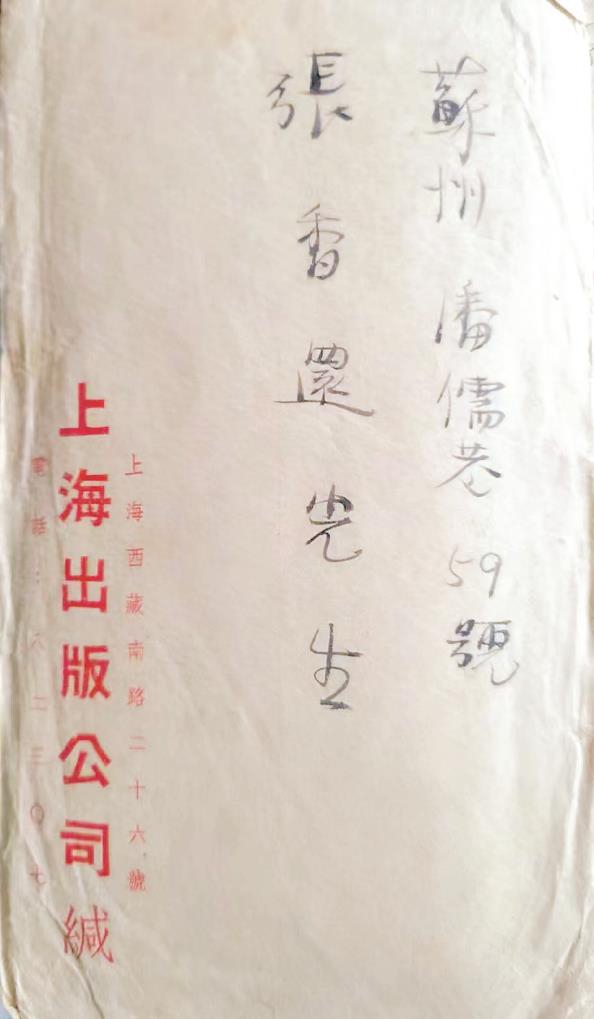 蘇州 潘儒巷 59號
張香還先生
上海西藏南路二十六號
上海出版公司緘
電話：八二三〇七